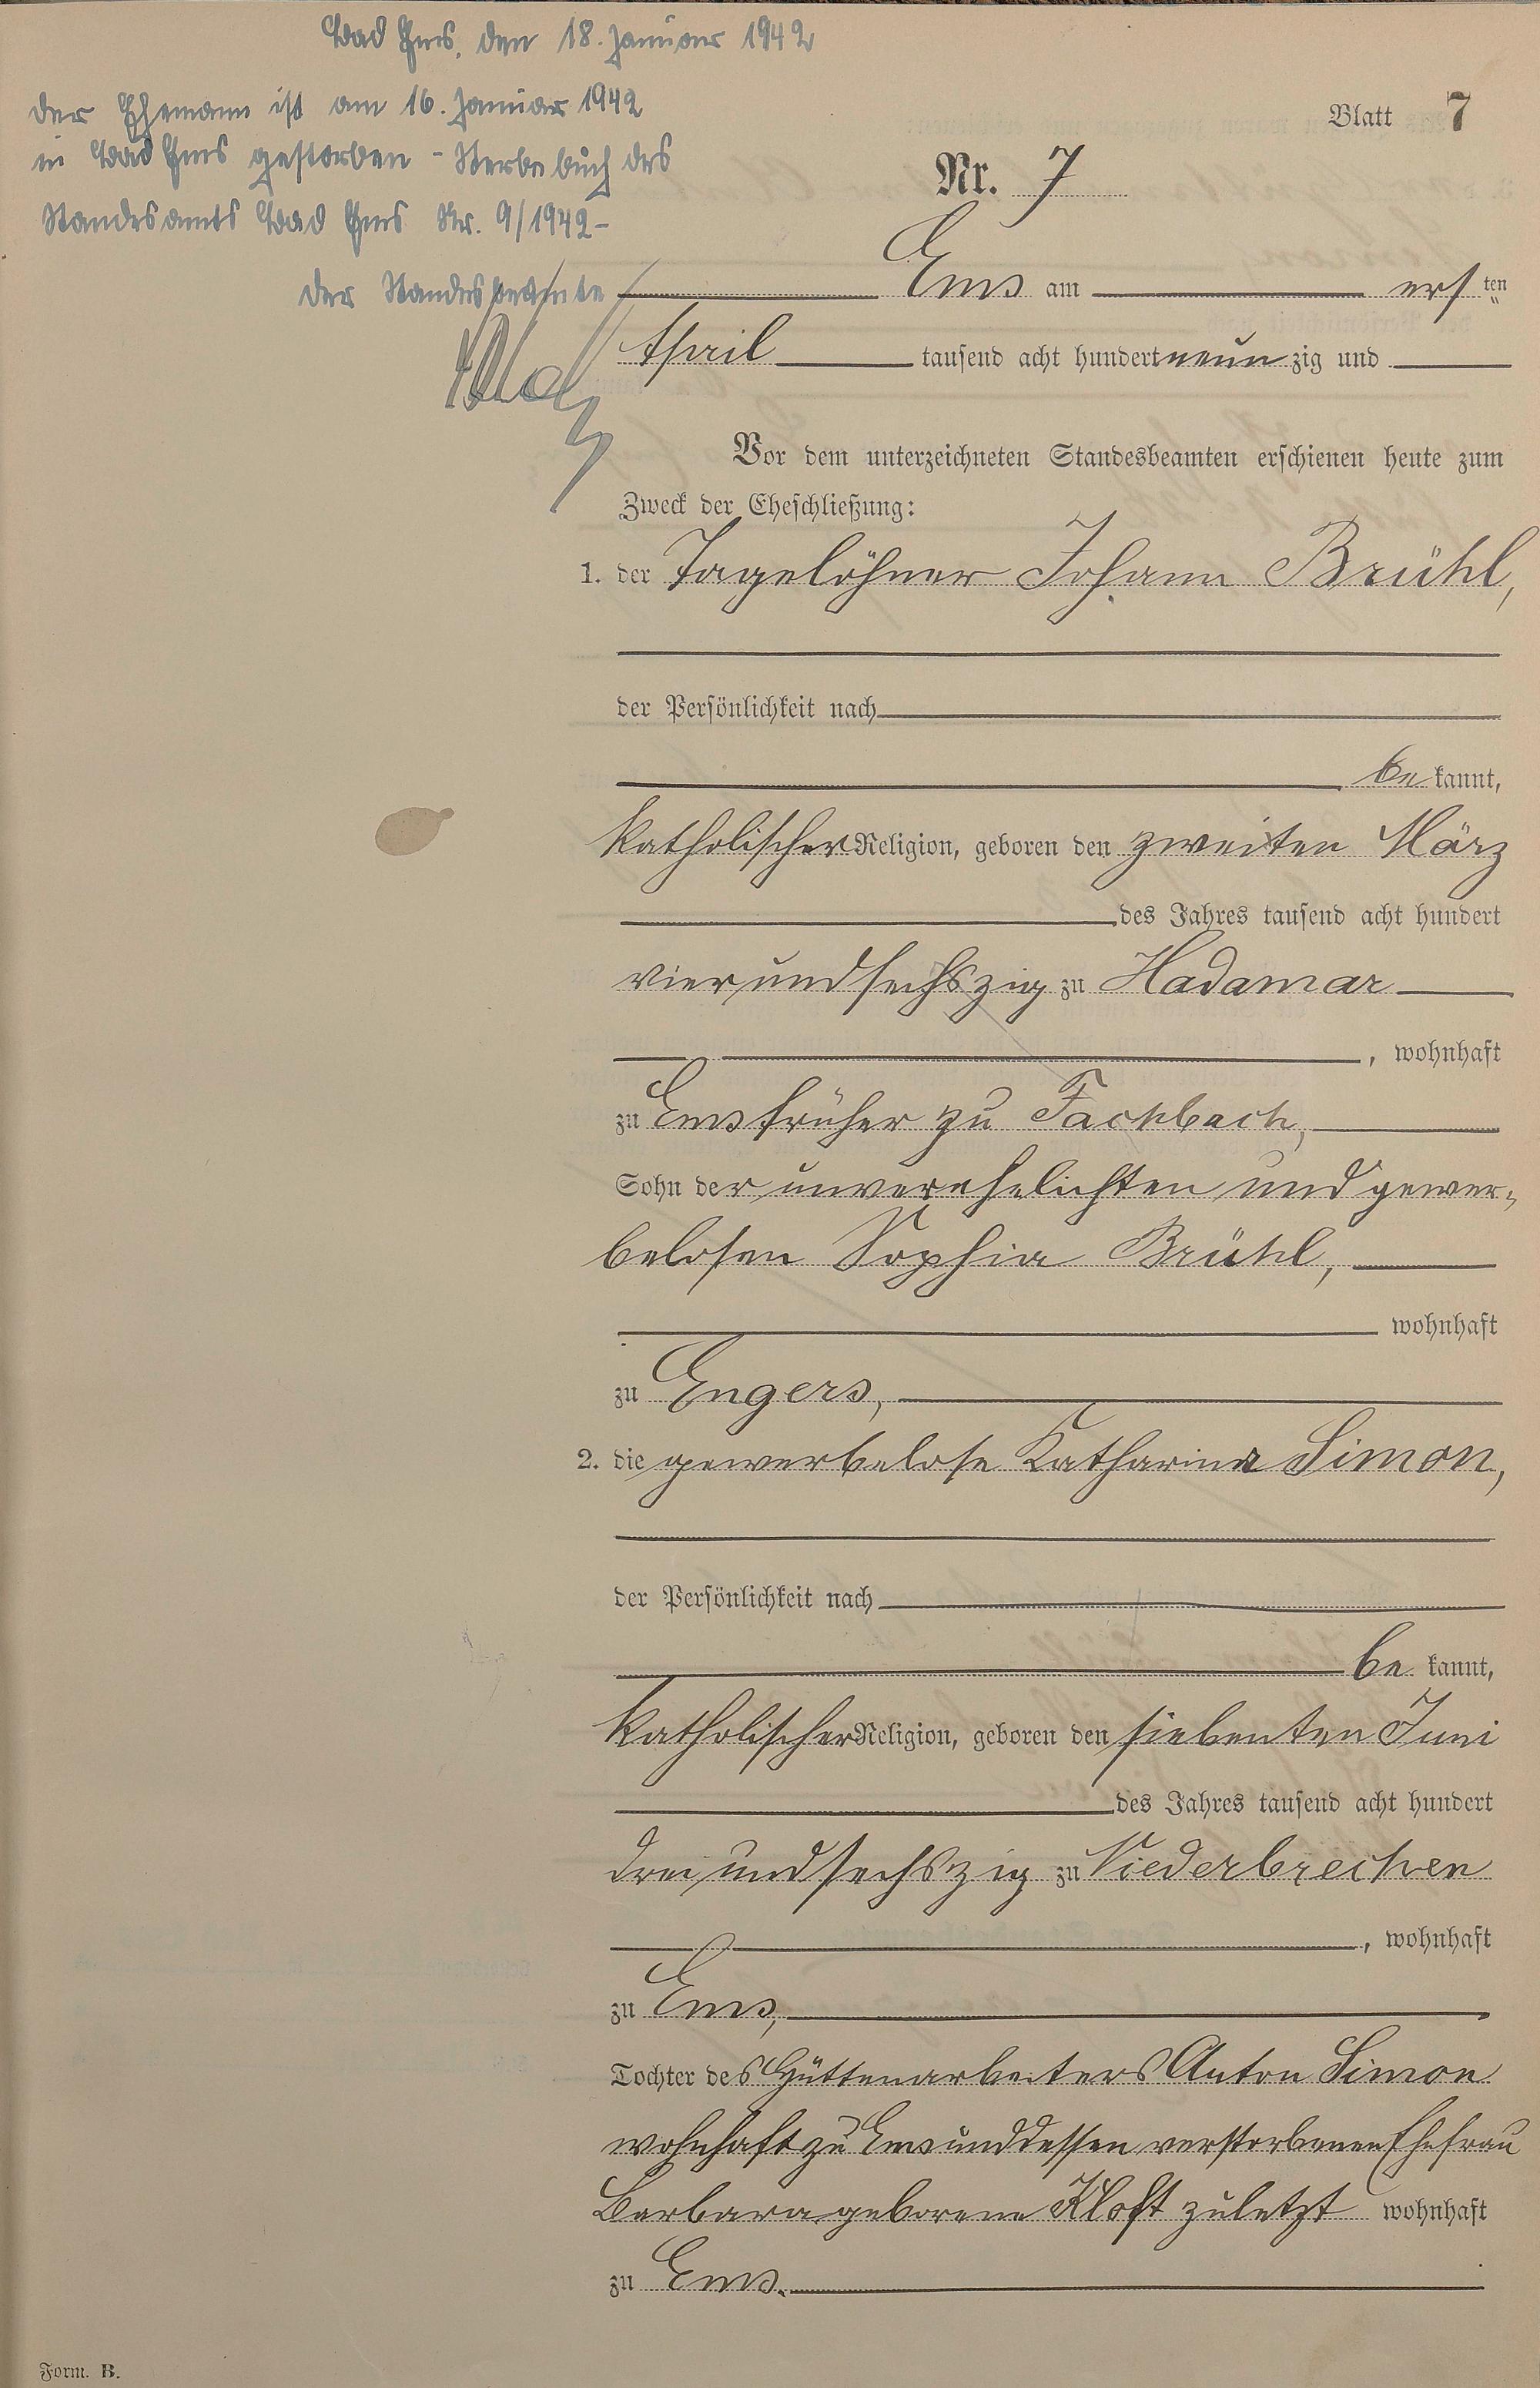 Bad Ems, den 18. Januar 1942
Der Ehemann ist am 16. Januar 1942
in Bad Ems gestorben - Sterbebuch des
Standesamts Bad Ems Nr. 9/1942 -
Der Standesbeamte
Blatt 7
Nr. 7
Ems am ersten
April tausend acht hundert neunzig und
Vor dem unterzeichneten Standesbeamten erschienen heute zum
Zweck der Eheschließung:
1. der Tagelöhner Johann Brühl,
der Persönlichkeit nach
bekannt,
katholischer Religion, geboren den zweiten März
des Jahres tausend acht hundert
vierundsechszig zu Hadamar
, wohnhaft
zu Ems früher zu Fachbach,
Sohn der unverehelichten und gewer-
belosen Sophia Brühl,
wohnhaft
zu Engers,
2. die gewerbelose Katharina Simon,
der Persönlichkeit nach
bekannt,
katholischer Religion, geboren den siebenten Juni
des Jahres tausend acht hundert
dreiundsechszig zu Niederbrechen
, wohnhaft
zu Ems,
Tochter des Hüttenarbeiters Anton Simon
wohnhaft zu Ems und dessen verstorbenen Ehefrau
Barbara geborene Kloft zuletzt wohnhaft
zu Ems.
Form. B.